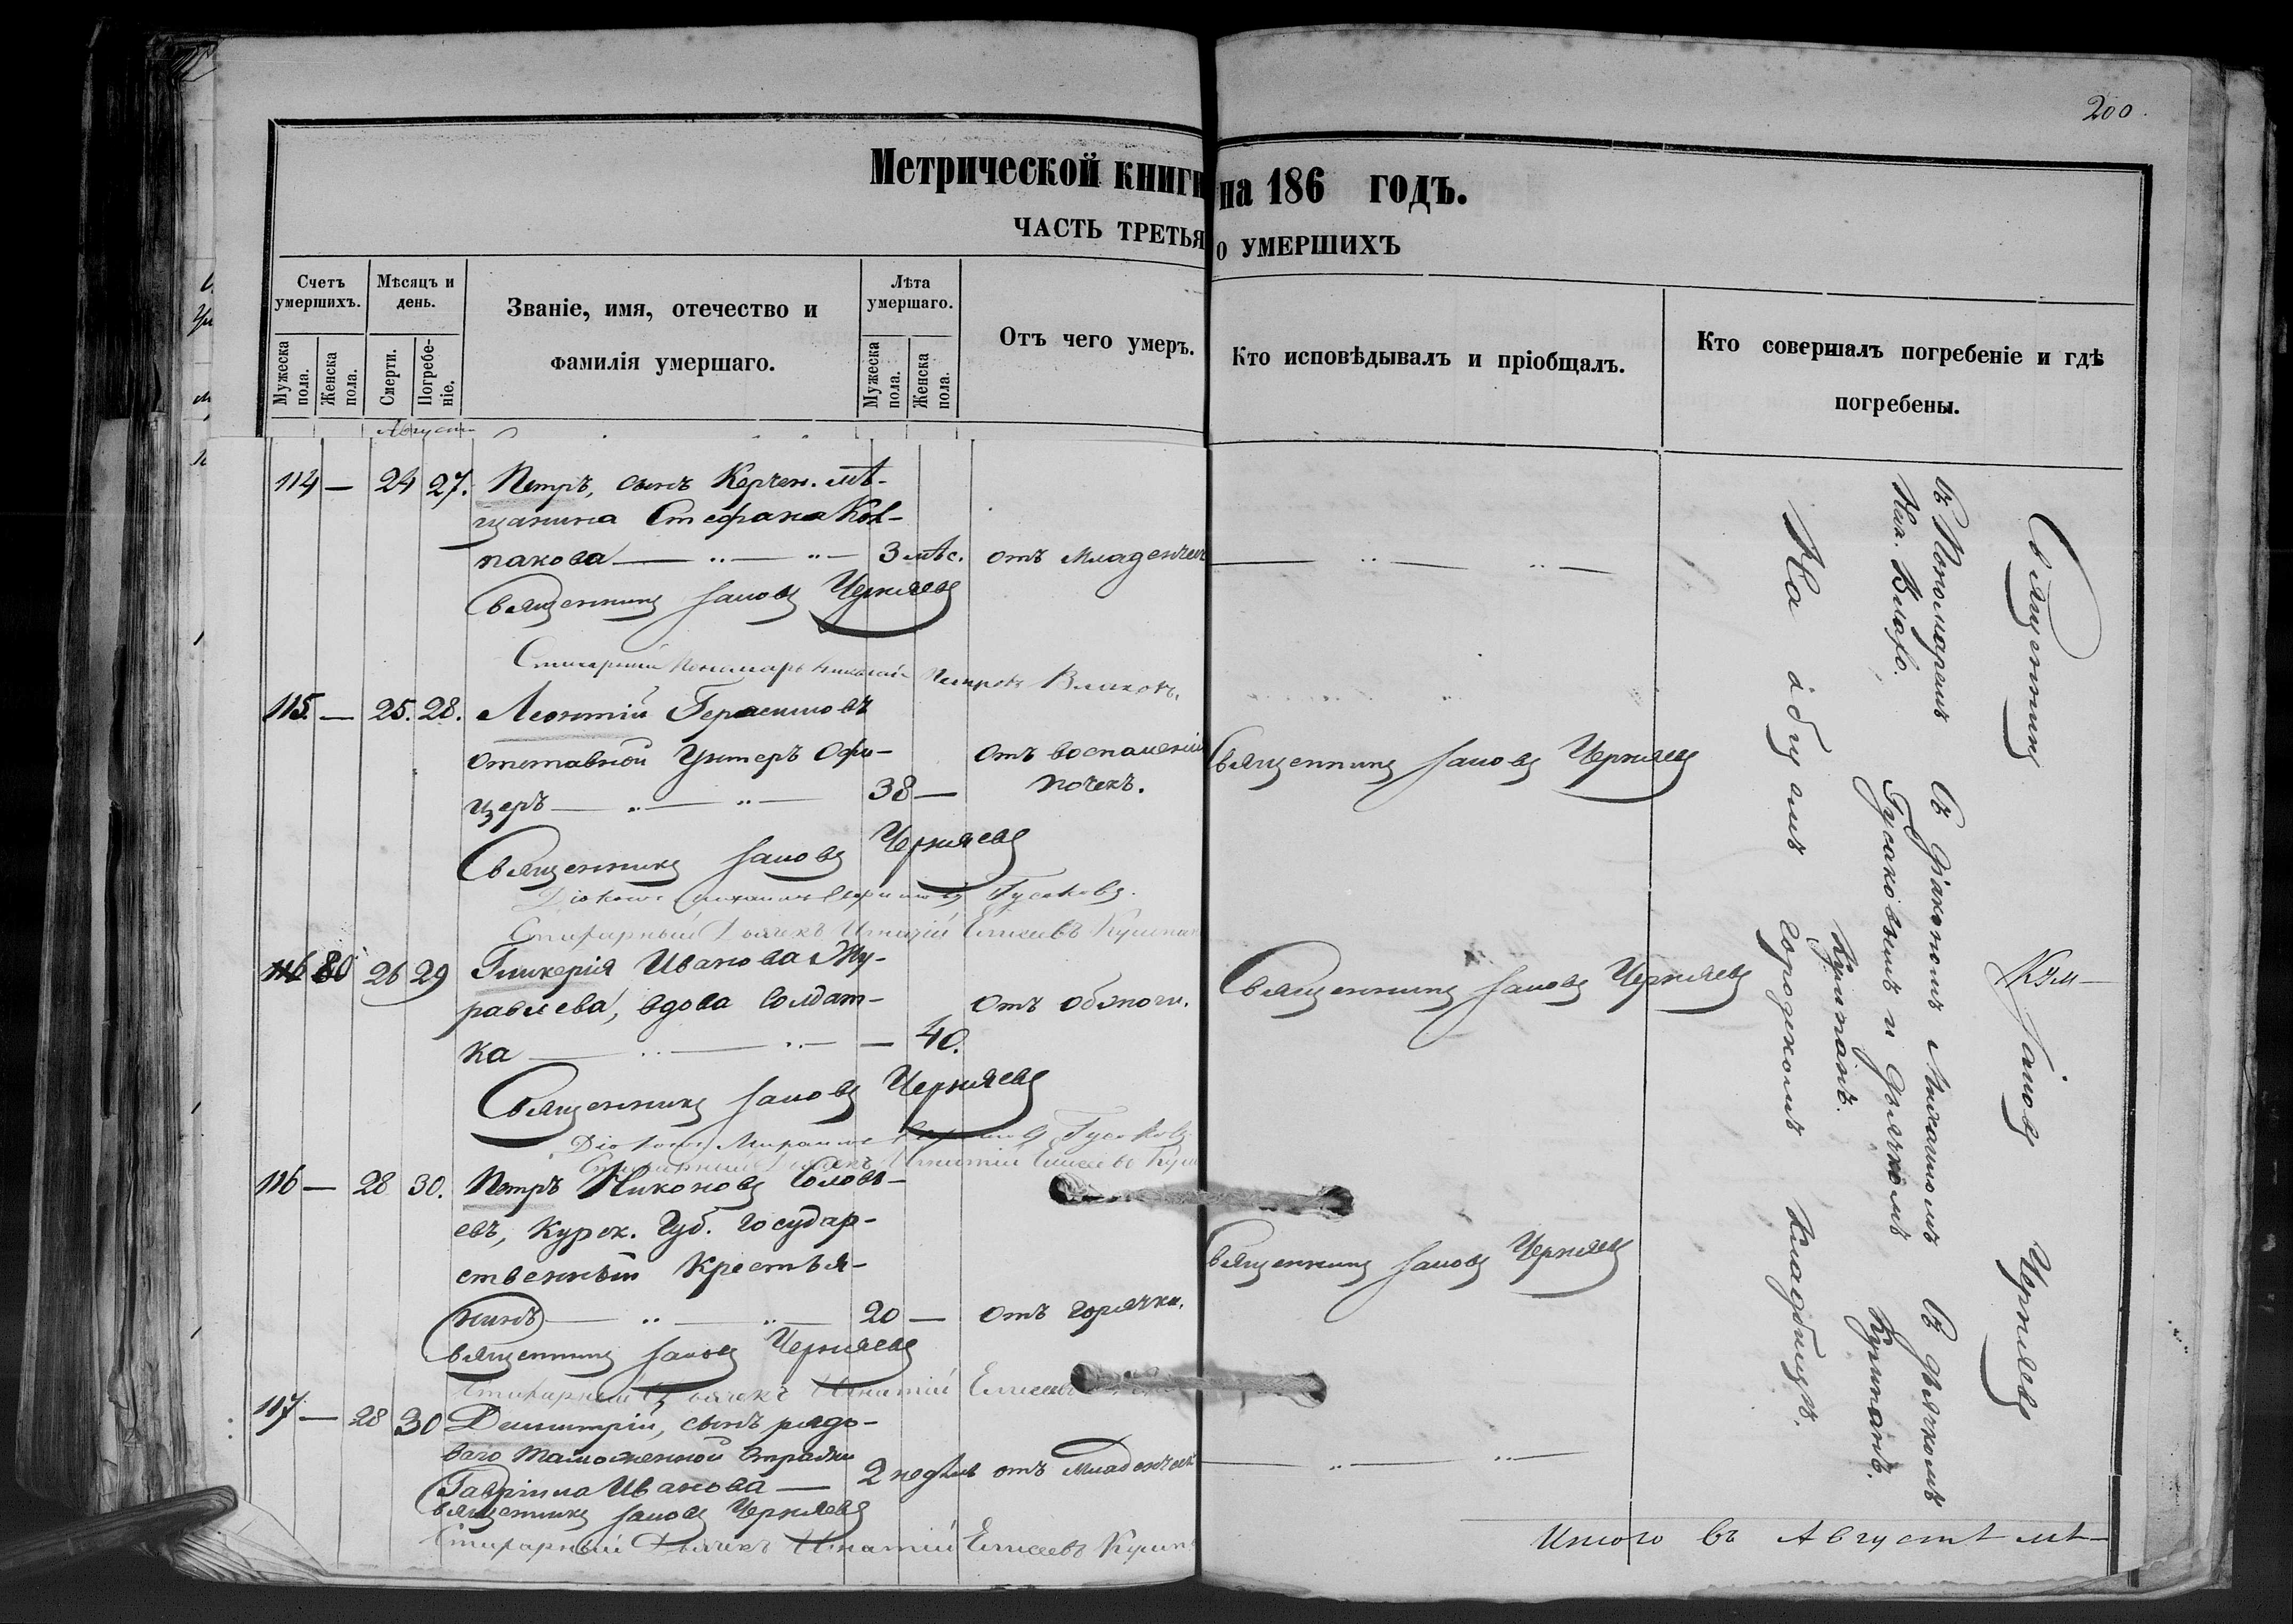 200.
Метрической книги на 186 годъ.
ЧАСТЬ ТРЕТЬЯ О УМЕРШИХЪ
Счетъ умершихъ.
Мужеска пола.
Женска пола.
Мѣсяцъ и день.
Смерти.
Погребе-ніе.
Званіе, имя, отечество и
фамилія умершаго.
Лѣта умершаго.
Мужеска пола.
Женска пола.
Отъ чего умеръ.
Кто исповѣдывалъ и пріобщалъ.
Кто совершалъ погребеніе и гдѣ
погребены.
Август
114 — 24 27. Петръ, сынъ Керчен. мѣ-
щанина Стефана Кол-
пакова — 3 мѣс. отъ младенчес
Священникъ Іаковъ Черняевъ
Стихарный Пономарь Николай Петровъ Влаховъ.
115. — 25. 28. Леонтій Герасимовъ
отставной Унтеръ офи-
церъ — 38 — отъ воспаленія
почекъ.
Священникъ Іаковъ Черняевъ
Священникъ Іаковъ Черняевъ
Діаконъ Михаилъ Гусаковъ.
Стихарный Дьячекъ Игнатій Елисеевъ
80 26 29 Гликерія Иванова Жу-
равлева, вдова солдат-
ка — 40.
отъ
Священникъ Іаковъ Черняевъ
Священникъ Іаковъ Черняевъ
Діаконъ Михаилъ Гусаковъ
Стихарный Дьячекъ Игнатій Елисеевъ
116 — 28 30. Петръ Никоновъ Соловь-
евъ, Курск. Губ. Государ-
ственный крестья-
нинъ — 20 — отъ горячки.
Священникъ Іаковъ Черняевъ
Священникъ Іаковъ Черняевъ
Стихарный Дьячекъ Игнатій Елисеевъ
117 — 28 30 Димитрій, сынъ рядо-
ваго таможенной стражи
Гавріила Иванова — 2 недѣль отъ младенческ
Священникъ Іаковъ Черняевъ
Стихарный Дьячекъ Игнатій Елисеевъ
Священникъ Іаковъ Черняевъ
Съ Пономаремъ
Ник. Влахо.
Съ Діакономъ Михаиломъ
Гусаковымъ и Дьячкомъ
Съ Дьячкомъ
На общемъ городскомъ кладбищѣ.
Итого въ Августѣ мѣ-